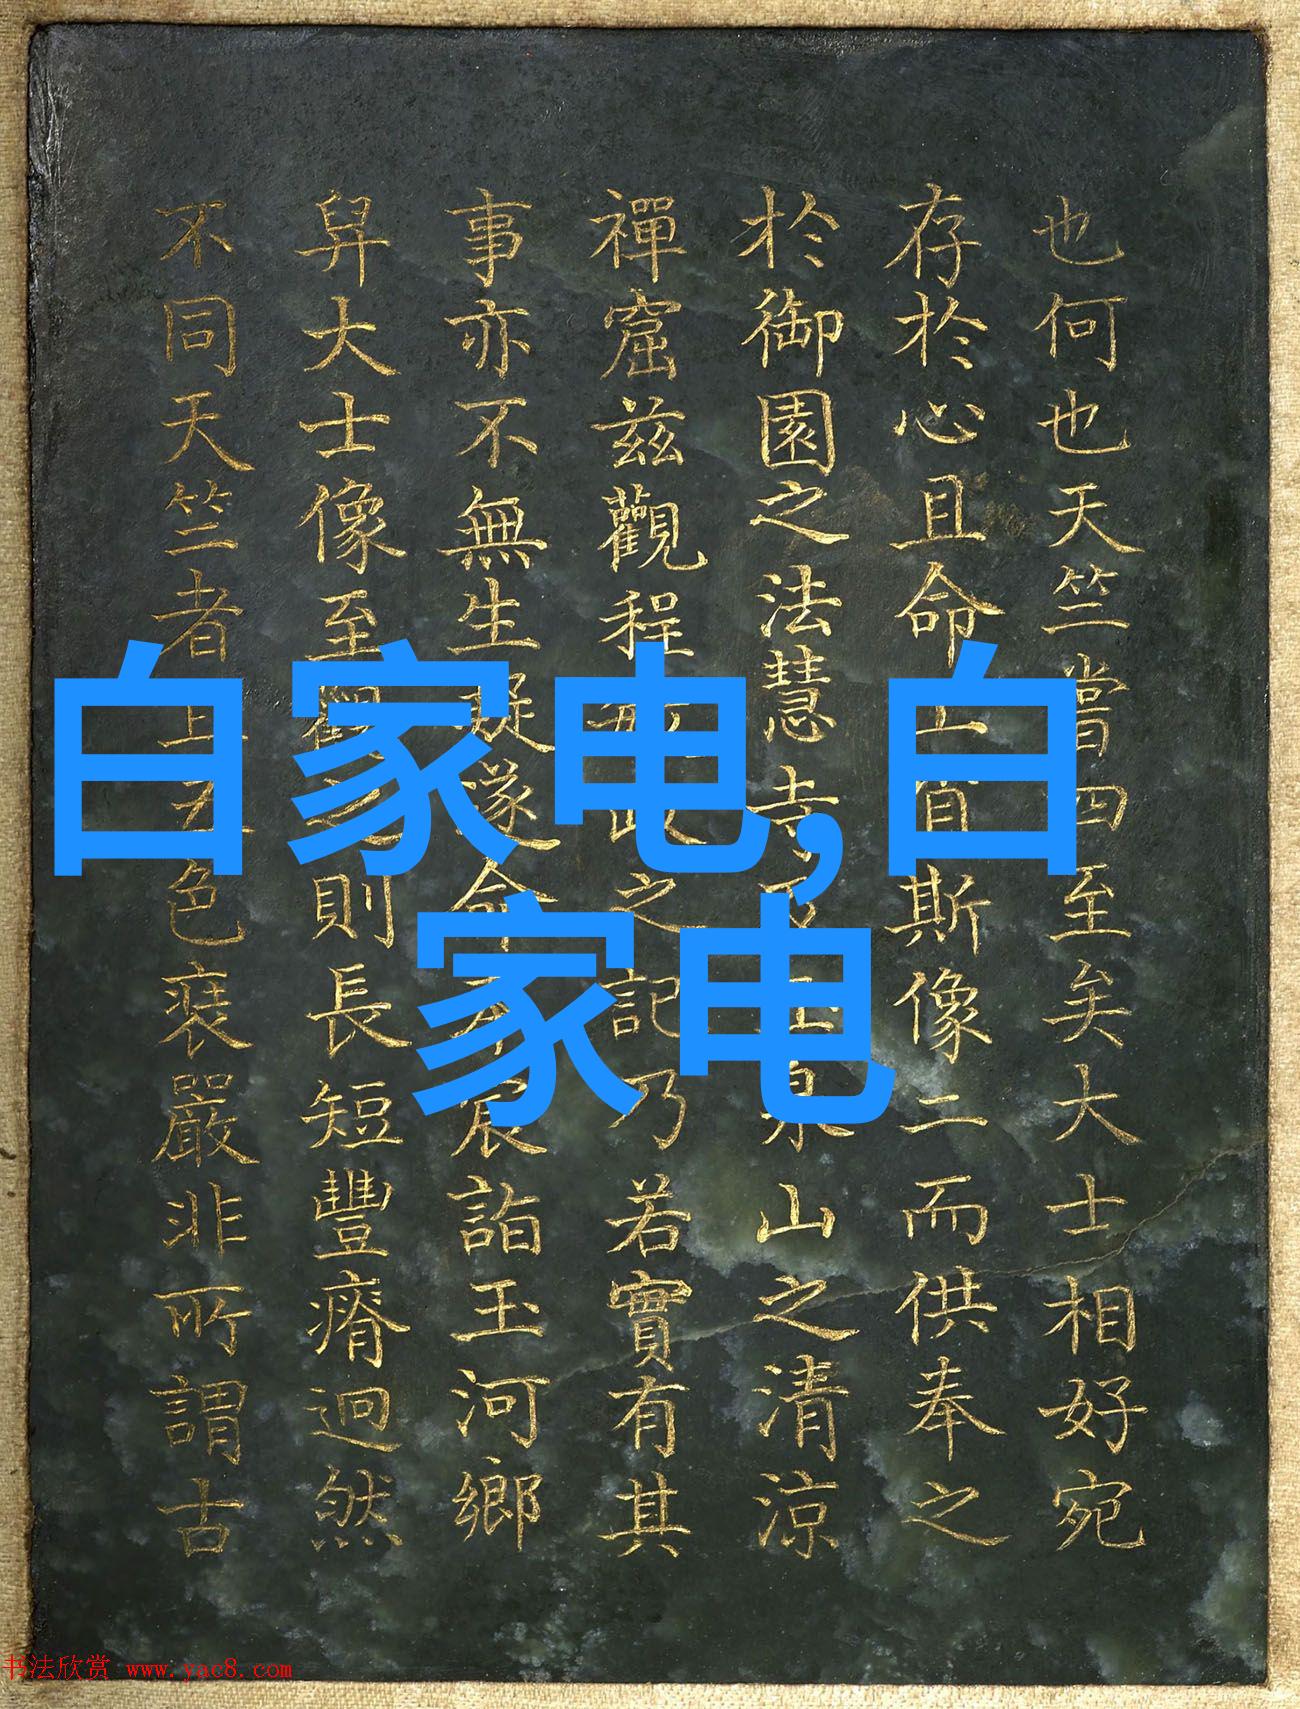 也何也天竺嘗四至矣大士相好宛
存於心且命斯像二而供奉之
於御園之法慧寺山之清涼
禪窟茲觀程此之記乃若實有其
事亦不無生疑遂命宸詣玉河鄉
舁大士像至觀之則長短豐瘠迥然
不同天竺者且五色裝嚴非所謂古
白家电,白
家电
书法欣赏 www.yac8.com